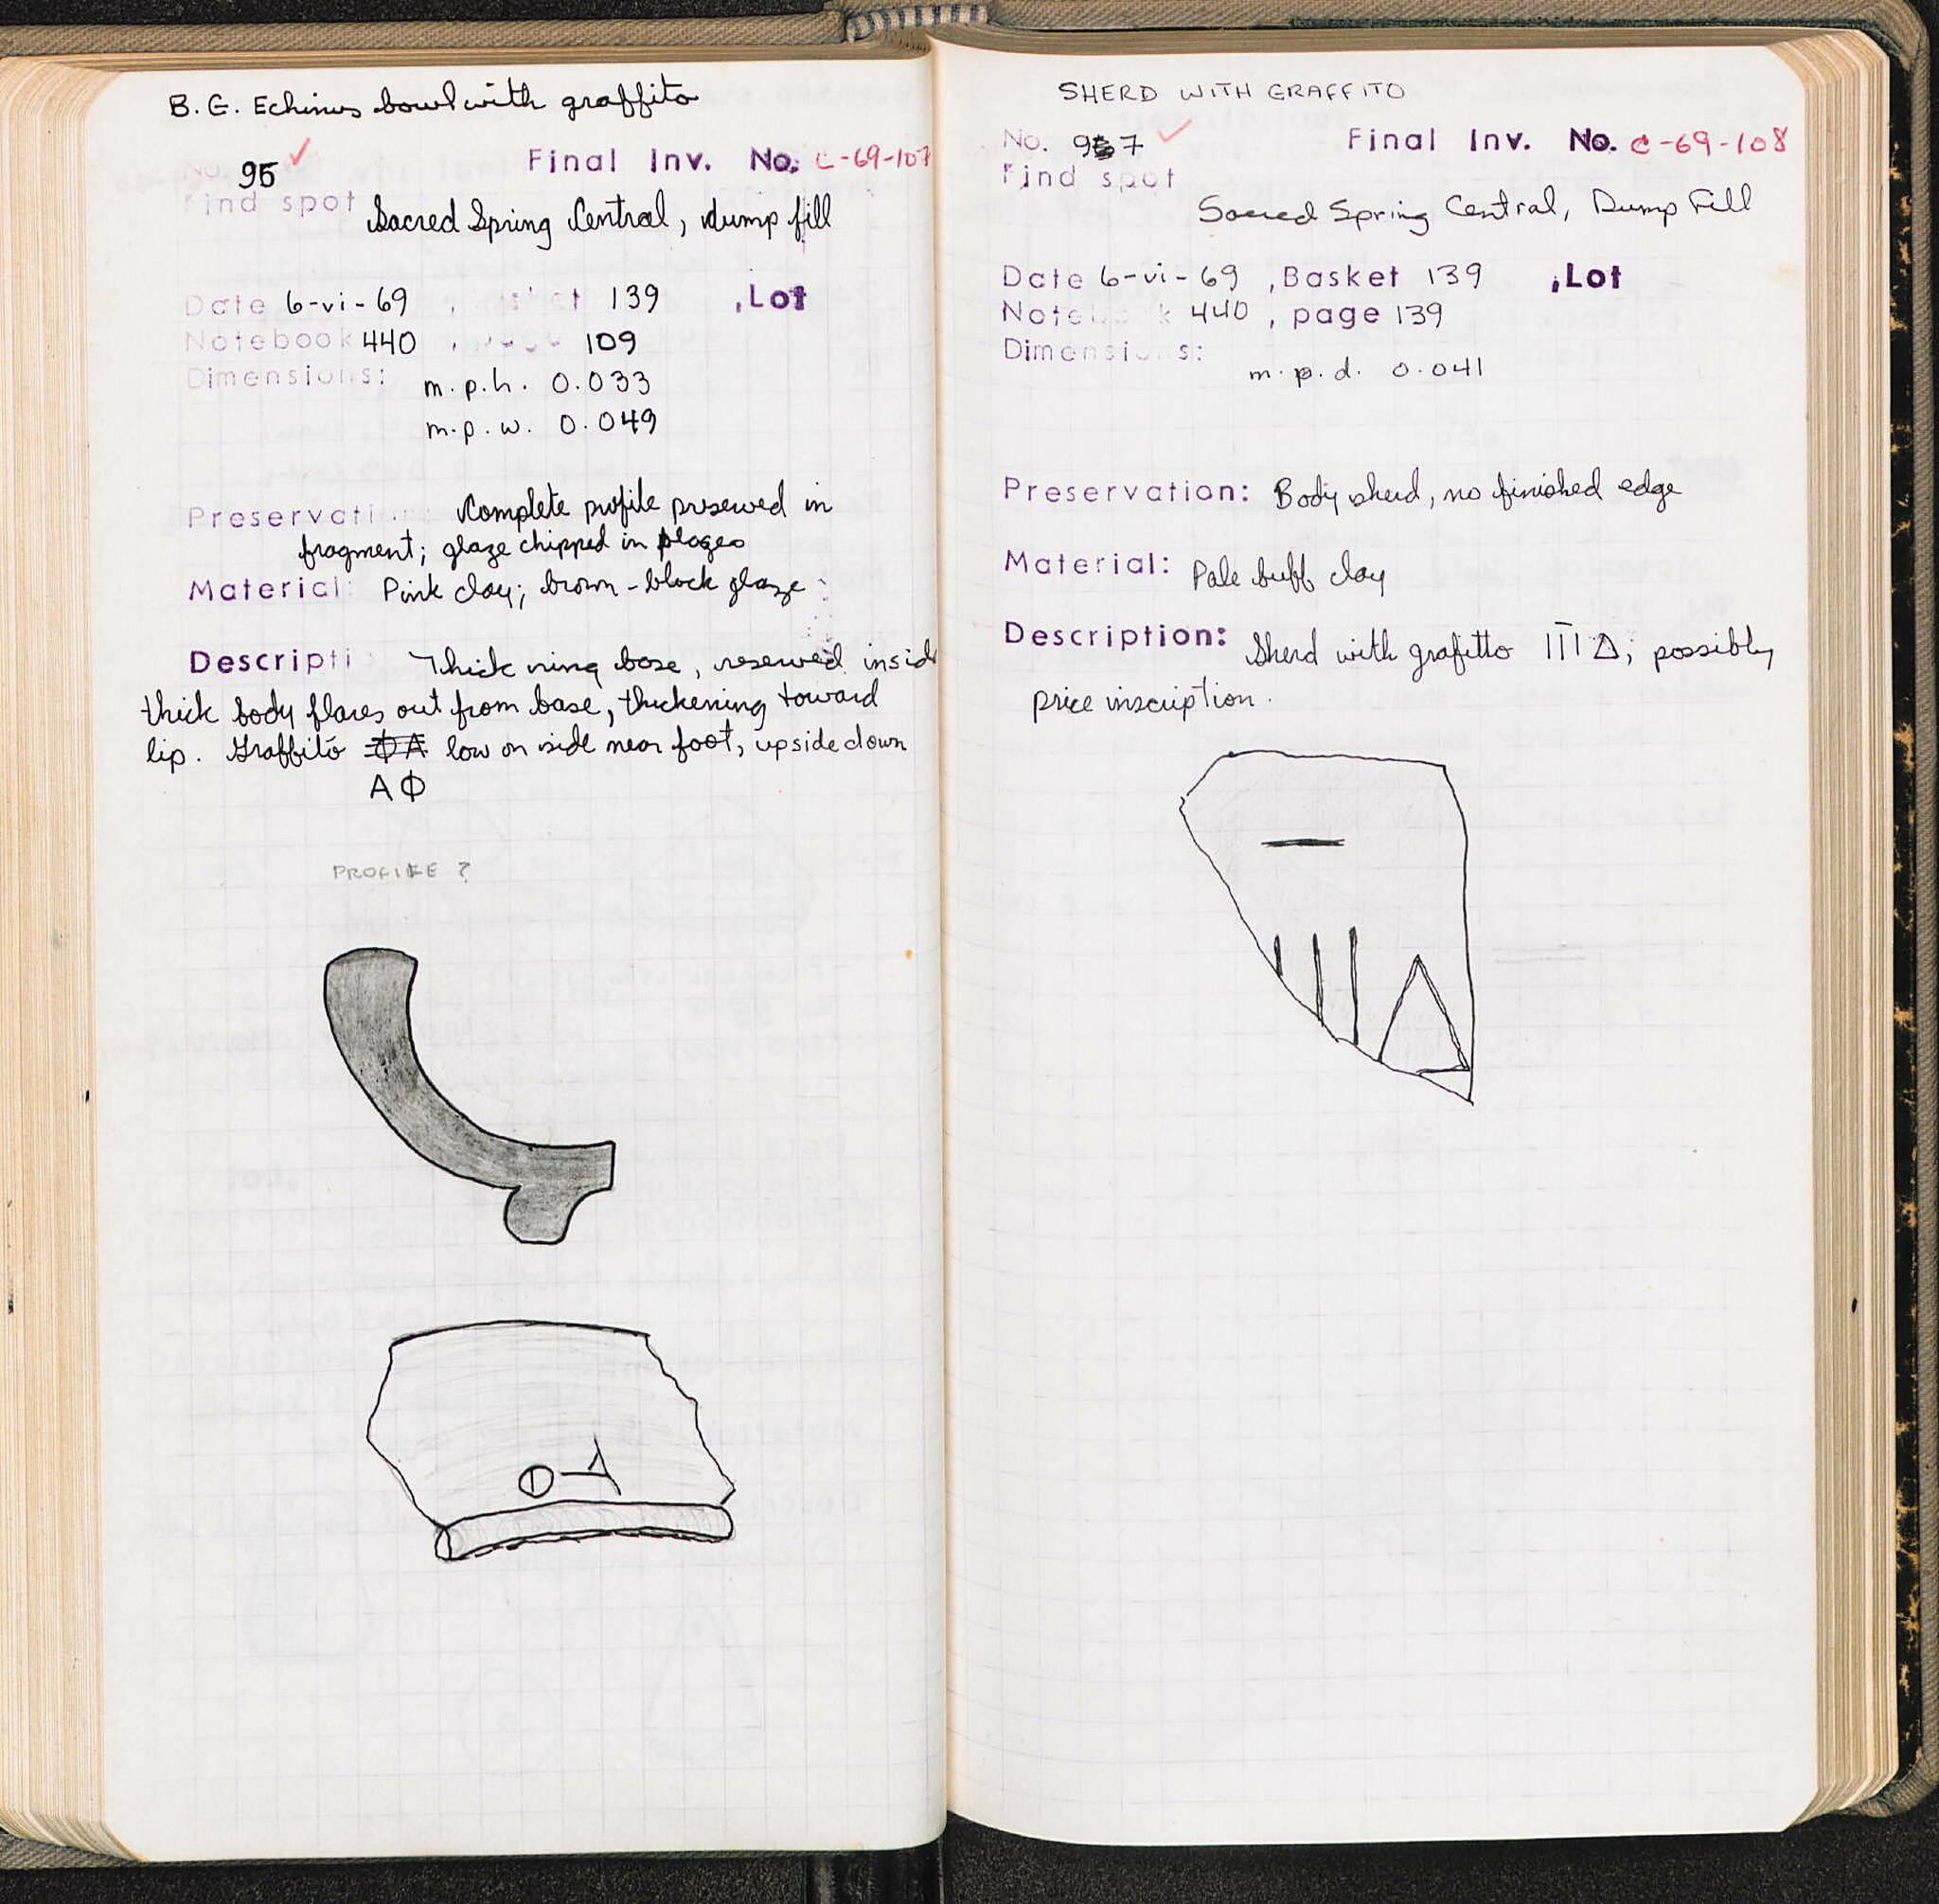 B.G. Echinus bowl with graffito
No. 96 Final Inv. No. C-69-107
Find spot Sacred Spring Central, dump fill
Date 6-vi-69, Basket 139 , Lot
Notebook 440, page 109
Dimensions: m.p.h. 0.033
m.p.w. 0.049
Preservation: Complete profile preserved in
fragment; glaze chipped in places
Material: Pink clay; brown-black glaze
Description: Thick ring base, reserved inside
thick body flares out from base, thickening toward
lip. Graffito ΦA low on side near foot, upside down
AΦ
PROFILE ?
SHERD WITH GRAFFITO
No. 97 Final Inv. No. C-69-108
Find spot
Sacred Spring Central, Dump Fill
Date 6-vi-69, Basket 139 , Lot
Notebook 440, page 139
Dimensions:
m.p.d. 0.041
Preservation: Body sherd, no finished edge
Material: Pale buff clay
Description: Sherd with grafitto III Δ; possibly
price inscription.